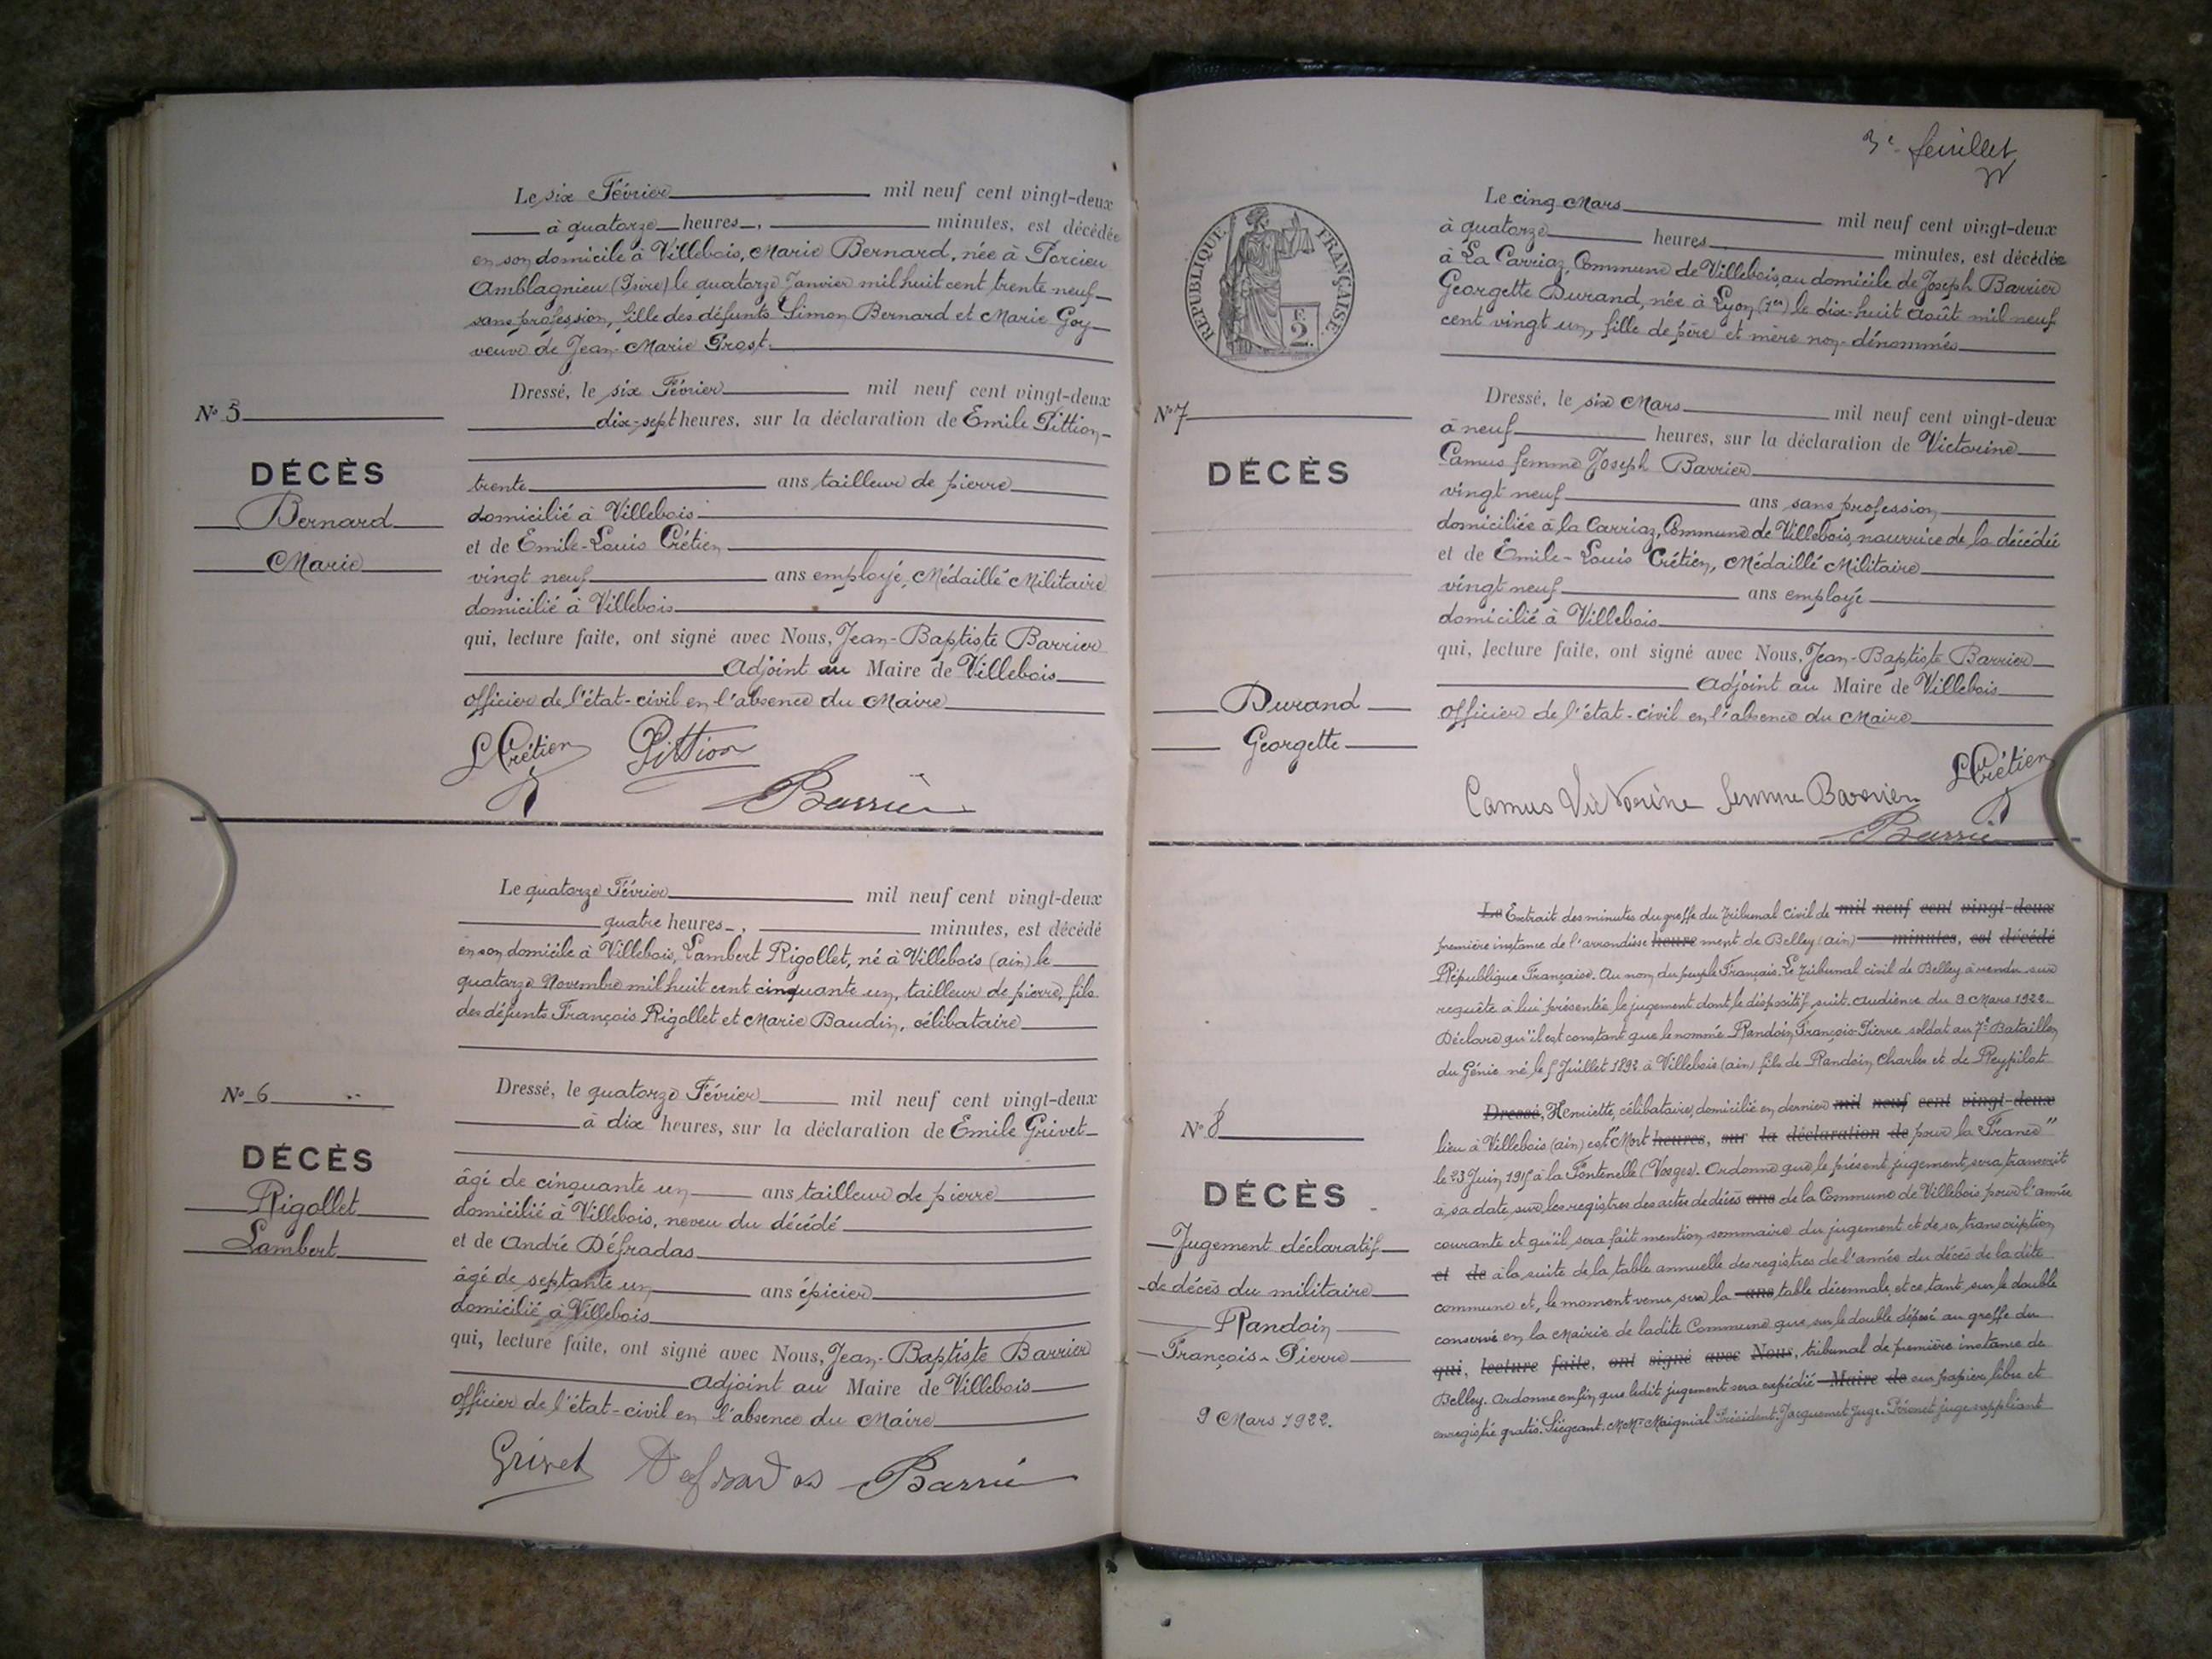 Le six Février mil neuf cent vingt-deux
à quatorze heures, minutes, est décédée
en son domicile à Villebois, Marie Bernard, née à Porcieu
Amblagnieu (Isère) le quatorze Janvier mil huit cent trente neuf
sans profession, fille des défunts Simon Bernard et Marie Goy
veuve de Jean-Marie Prost.
Dressé, le six Février mil neuf cent vingt-deux
dix-sept heures, sur la déclaration de Emile Pittion
trente ans tailleur de pierre
domicilié à Villebois
et de Emile-Louis Crétien
vingt neuf ans employé, Médaillé Militaire
domicilié à Villebois
qui, lecture faite, ont signé avec Nous, Jean-Baptiste Barrier
Adjoint au Maire de Villebois
officier de l'état-civil en l'absence du Maire
L Crétien Pittion
Barrier
N° 5
DÉCÈS
Bernard
Marie
Le quatorze Février mil neuf cent vingt-deux
quatre heures, minutes, est décédé
en son domicile à Villebois, Lambert Rigollet, né à Villebois (ain) le
quatorze Novembre mil huit cent cinquante un, tailleur de pierre, fils
des défunts François Rigollet et Marie Baudin, célibataire
Dressé, le quatorze Février mil neuf cent vingt-deux
à dix heures, sur la déclaration de Emile Grivet
âgé de cinquante un ans tailleur de pierre
domicilié à Villebois, neveu du décédé
et de André Défradas
âgé de septante un ans épicier
domicilié à Villebois
qui, lecture faite, ont signé avec Nous, Jean-Baptiste Barrier
Adjoint au Maire de Villebois
officier de l'état-civil en l'absence du Maire
Grivet Defradas Barrier
N° 6
DÉCÈS
Rigollet
Lambert
3e feuillet
REPUBLIQUE FRANÇAISE.
F.
2.
Le cinq Mars mil neuf cent vingt-deux
à quatorze heures minutes, est décédée
à La Carriaz, Commune de Villebois, au domicile de Joseph Barrier
Georgette Durand, née à Lyon (1er) le dix-huit Août mil neuf
cent vingt un, fille de père et mère non-dénommés
Dressé, le six Mars mil neuf cent vingt-deux
à neuf heures, sur la déclaration de Victorine
Camus femme Joseph Barrier
vingt neuf ans sans profession
domiciliée à la Carriaz, Commune de Villebois, nourrice de la décédée
et de Emile-Louis Crétien, Médaillé Militaire
vingt neuf ans employé
domicilié à Villebois
qui, lecture faite, ont signé avec Nous, Jean-Baptiste Barrier
Adjoint au Maire de Villebois
officier de l'état-civil en l'absence du Maire
L Crétien
Camus Victorine femme Barrier
Barrier
N° 7
DÉCÈS
Durand
Georgette
Le Extrait des minutes du greffe du Tribunal Civil de mil neuf cent vingt-deux
première instance de l'arrondisse heure ment de Belley (ain) minutes, est décédé
République Française. Au nom du peuple Français. Le Tribunal civil de Belley a rendu sur
requête à lui présentée le jugement dont le dispositif suit. Audience du 9 Mars 1922.
Déclare qu'il est constant que le nommé Randoin François-Pierre soldat au 7e Bataillon
du Génie né le 5 Juillet 1892 à Villebois (ain) fils de Randoin Charles et de Reypilot
Dressé, Henriette, célibataire, domicilié en dernier mil neuf cent vingt-deux
lieu à Villebois (ain) est "Mort heures, sur la déclaration de pour la France"
le 23 Juin 1915 à la Fontenelle (Vosges). Ordonne que le présent jugement sera transcrit
à sa date sur les registres des actes de décès ans de la Commune de Villebois pour l'année
courante et qu'il sera fait mention sommaire du jugement et de sa transcription
et de à la suite de la table annuelle des registres de l'année du décès de la dite
commune et, le moment venu sur la ans table décennale, et ce tant sur le double
conservé en la Mairie de ladite Commune que sur le double déposé au greffe du
qui, lecture faite, ont signé avec Nous, tribunal de première instance de
Belley. Ordonne enfin que ledit jugement sera expédié Maire de sur papier libre et
enregistré gratis. Siégeant: MMrs Maignial Président. Jacquemet Juge. Péronet juge suppléant
N° 8
DÉCÈS
Jugement déclaratif
de décès du militaire
Randoin
François-Pierre
9 Mars 1922.